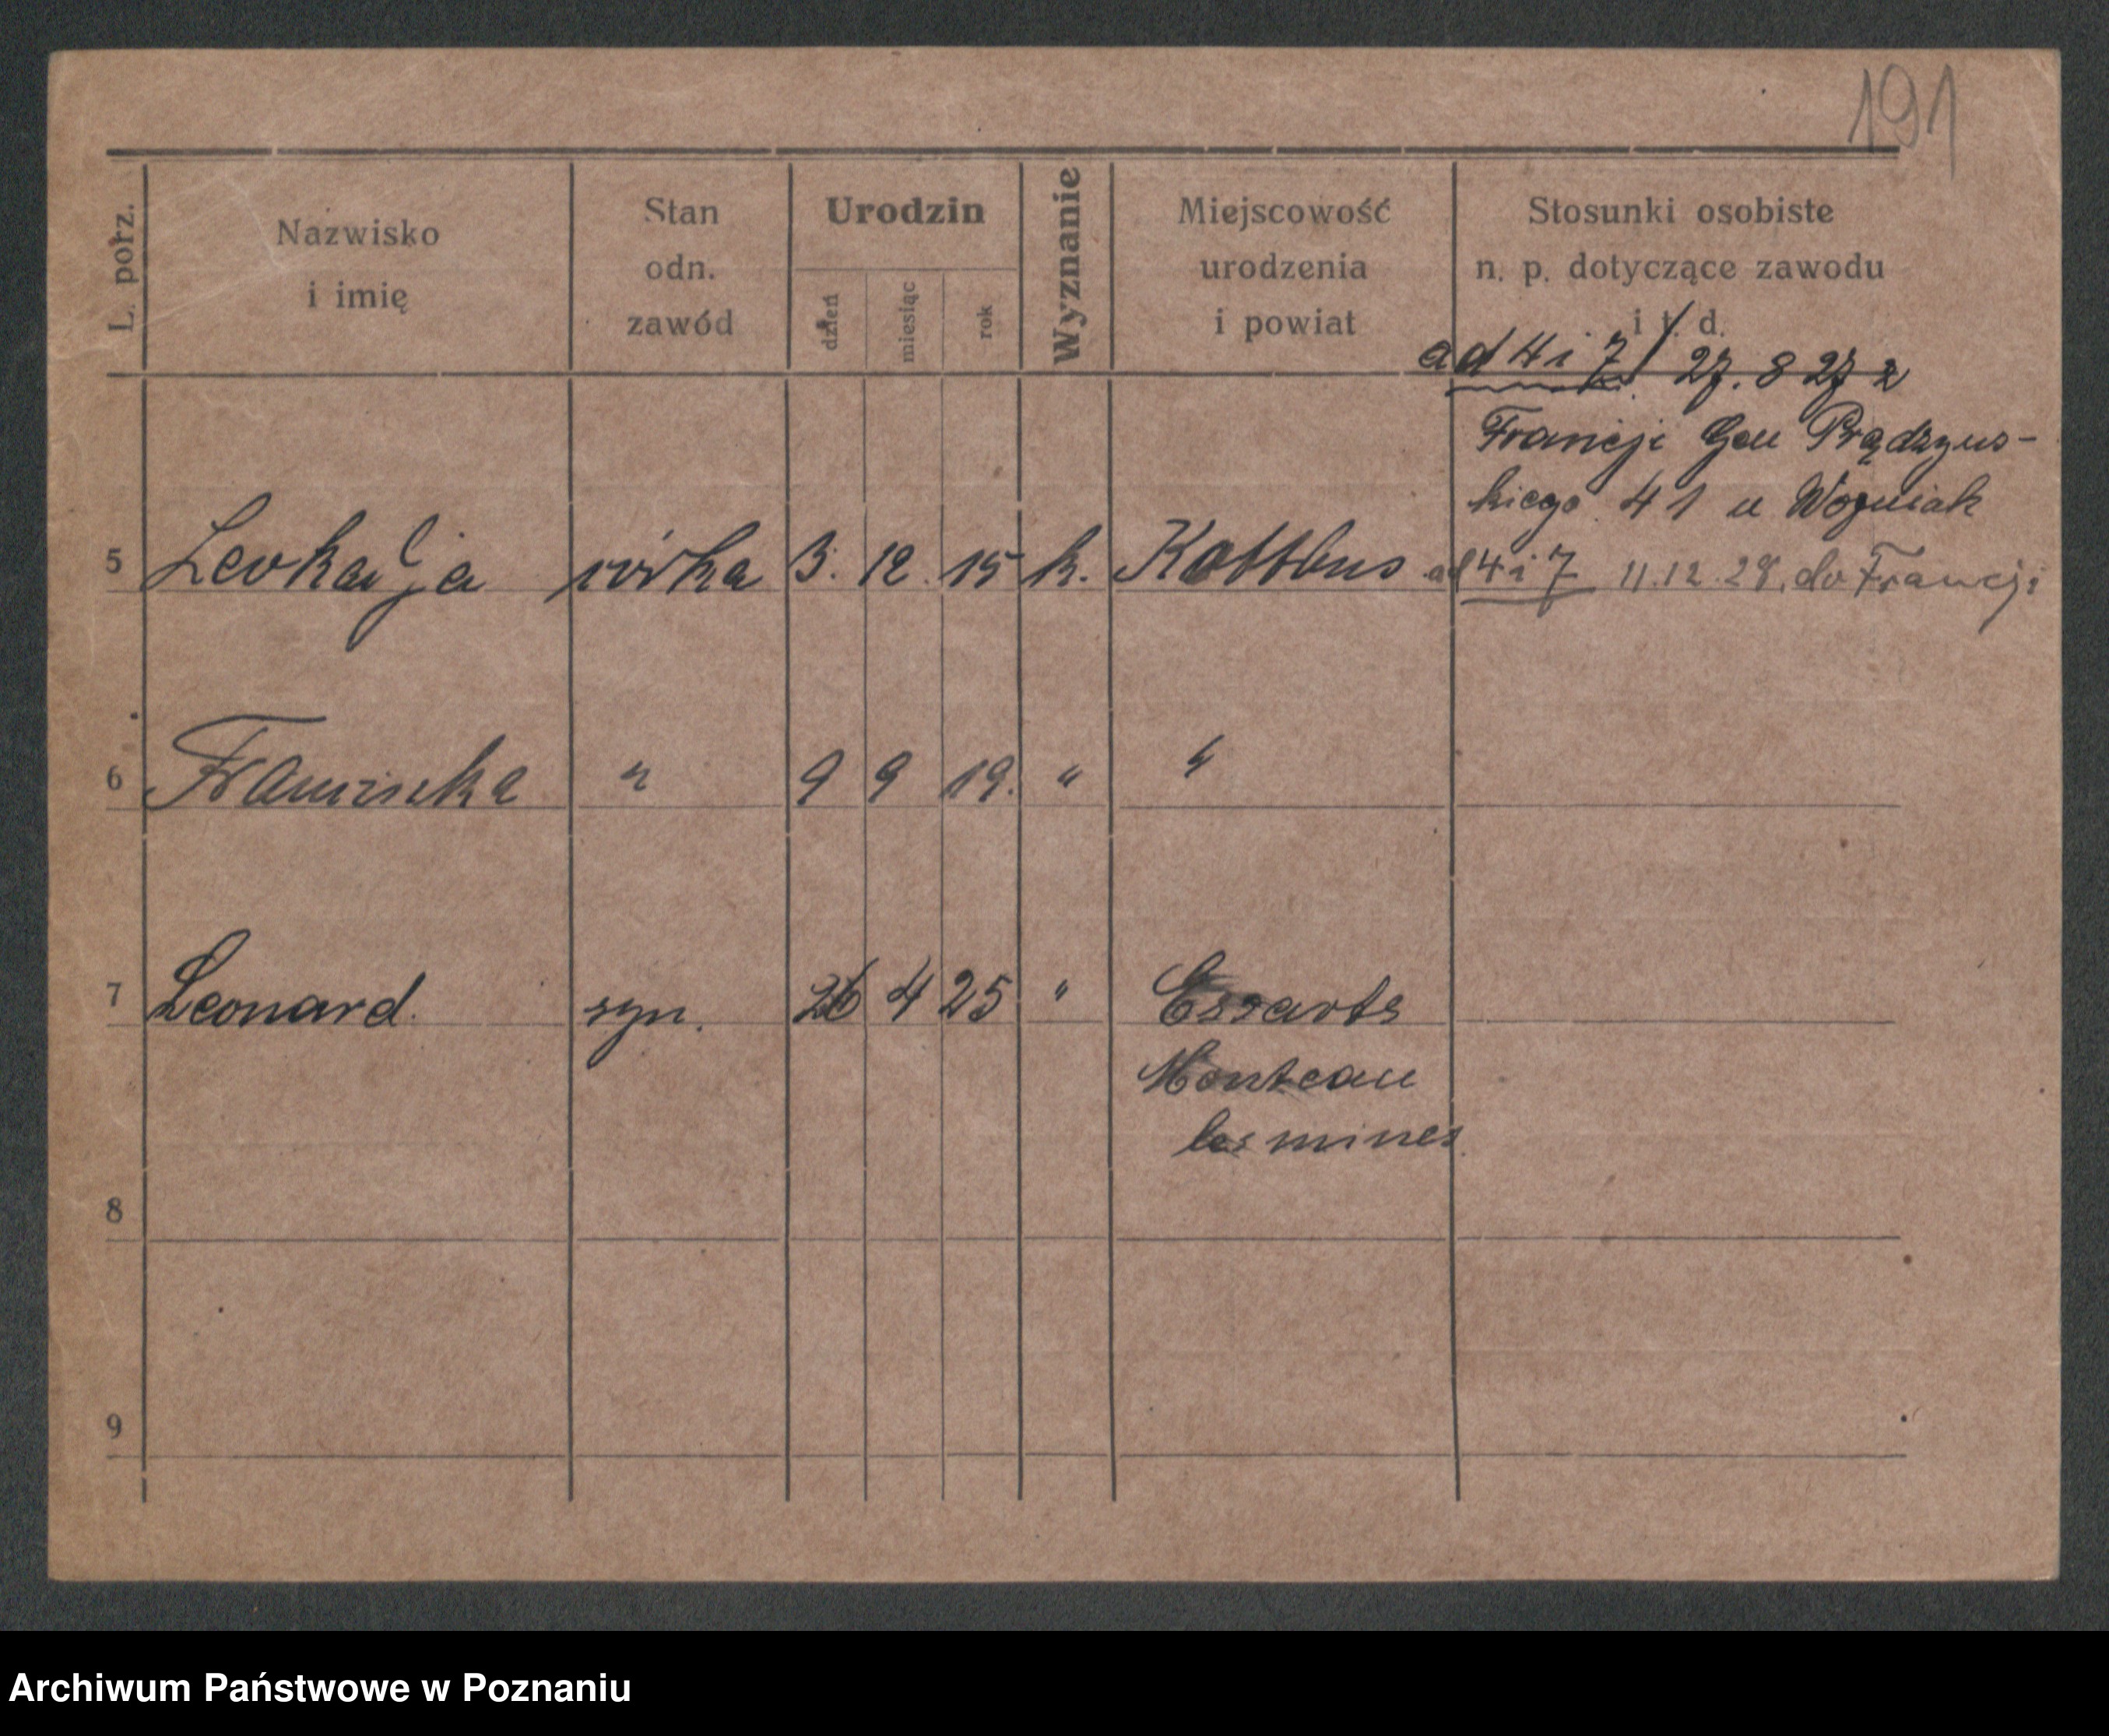 191
L. porz.
Nazwisko
i imię
Stan
odn.
zawód
Urodzin
dzień
miesiąc
rok
Wyznanie
Miejscowość
urodzenia
i powiat
Stosunki osobiste
n. p. dotyczące zawodu
i t. d.
ad 4 i 7/ 27. 8 27 z
Francji Gen Prądzyns-
kiego 41 u Woźniak
5 córka 3. 12. 15 k. Kottbus ad 4 i 7 11.12.28. do Francji
6 Franziska " 9 9 19. " "
7 Leonard. syn. 26 4 25 " Essarts
Montceau
les mines
8
9
Archiwum Państwowe w Poznaniu